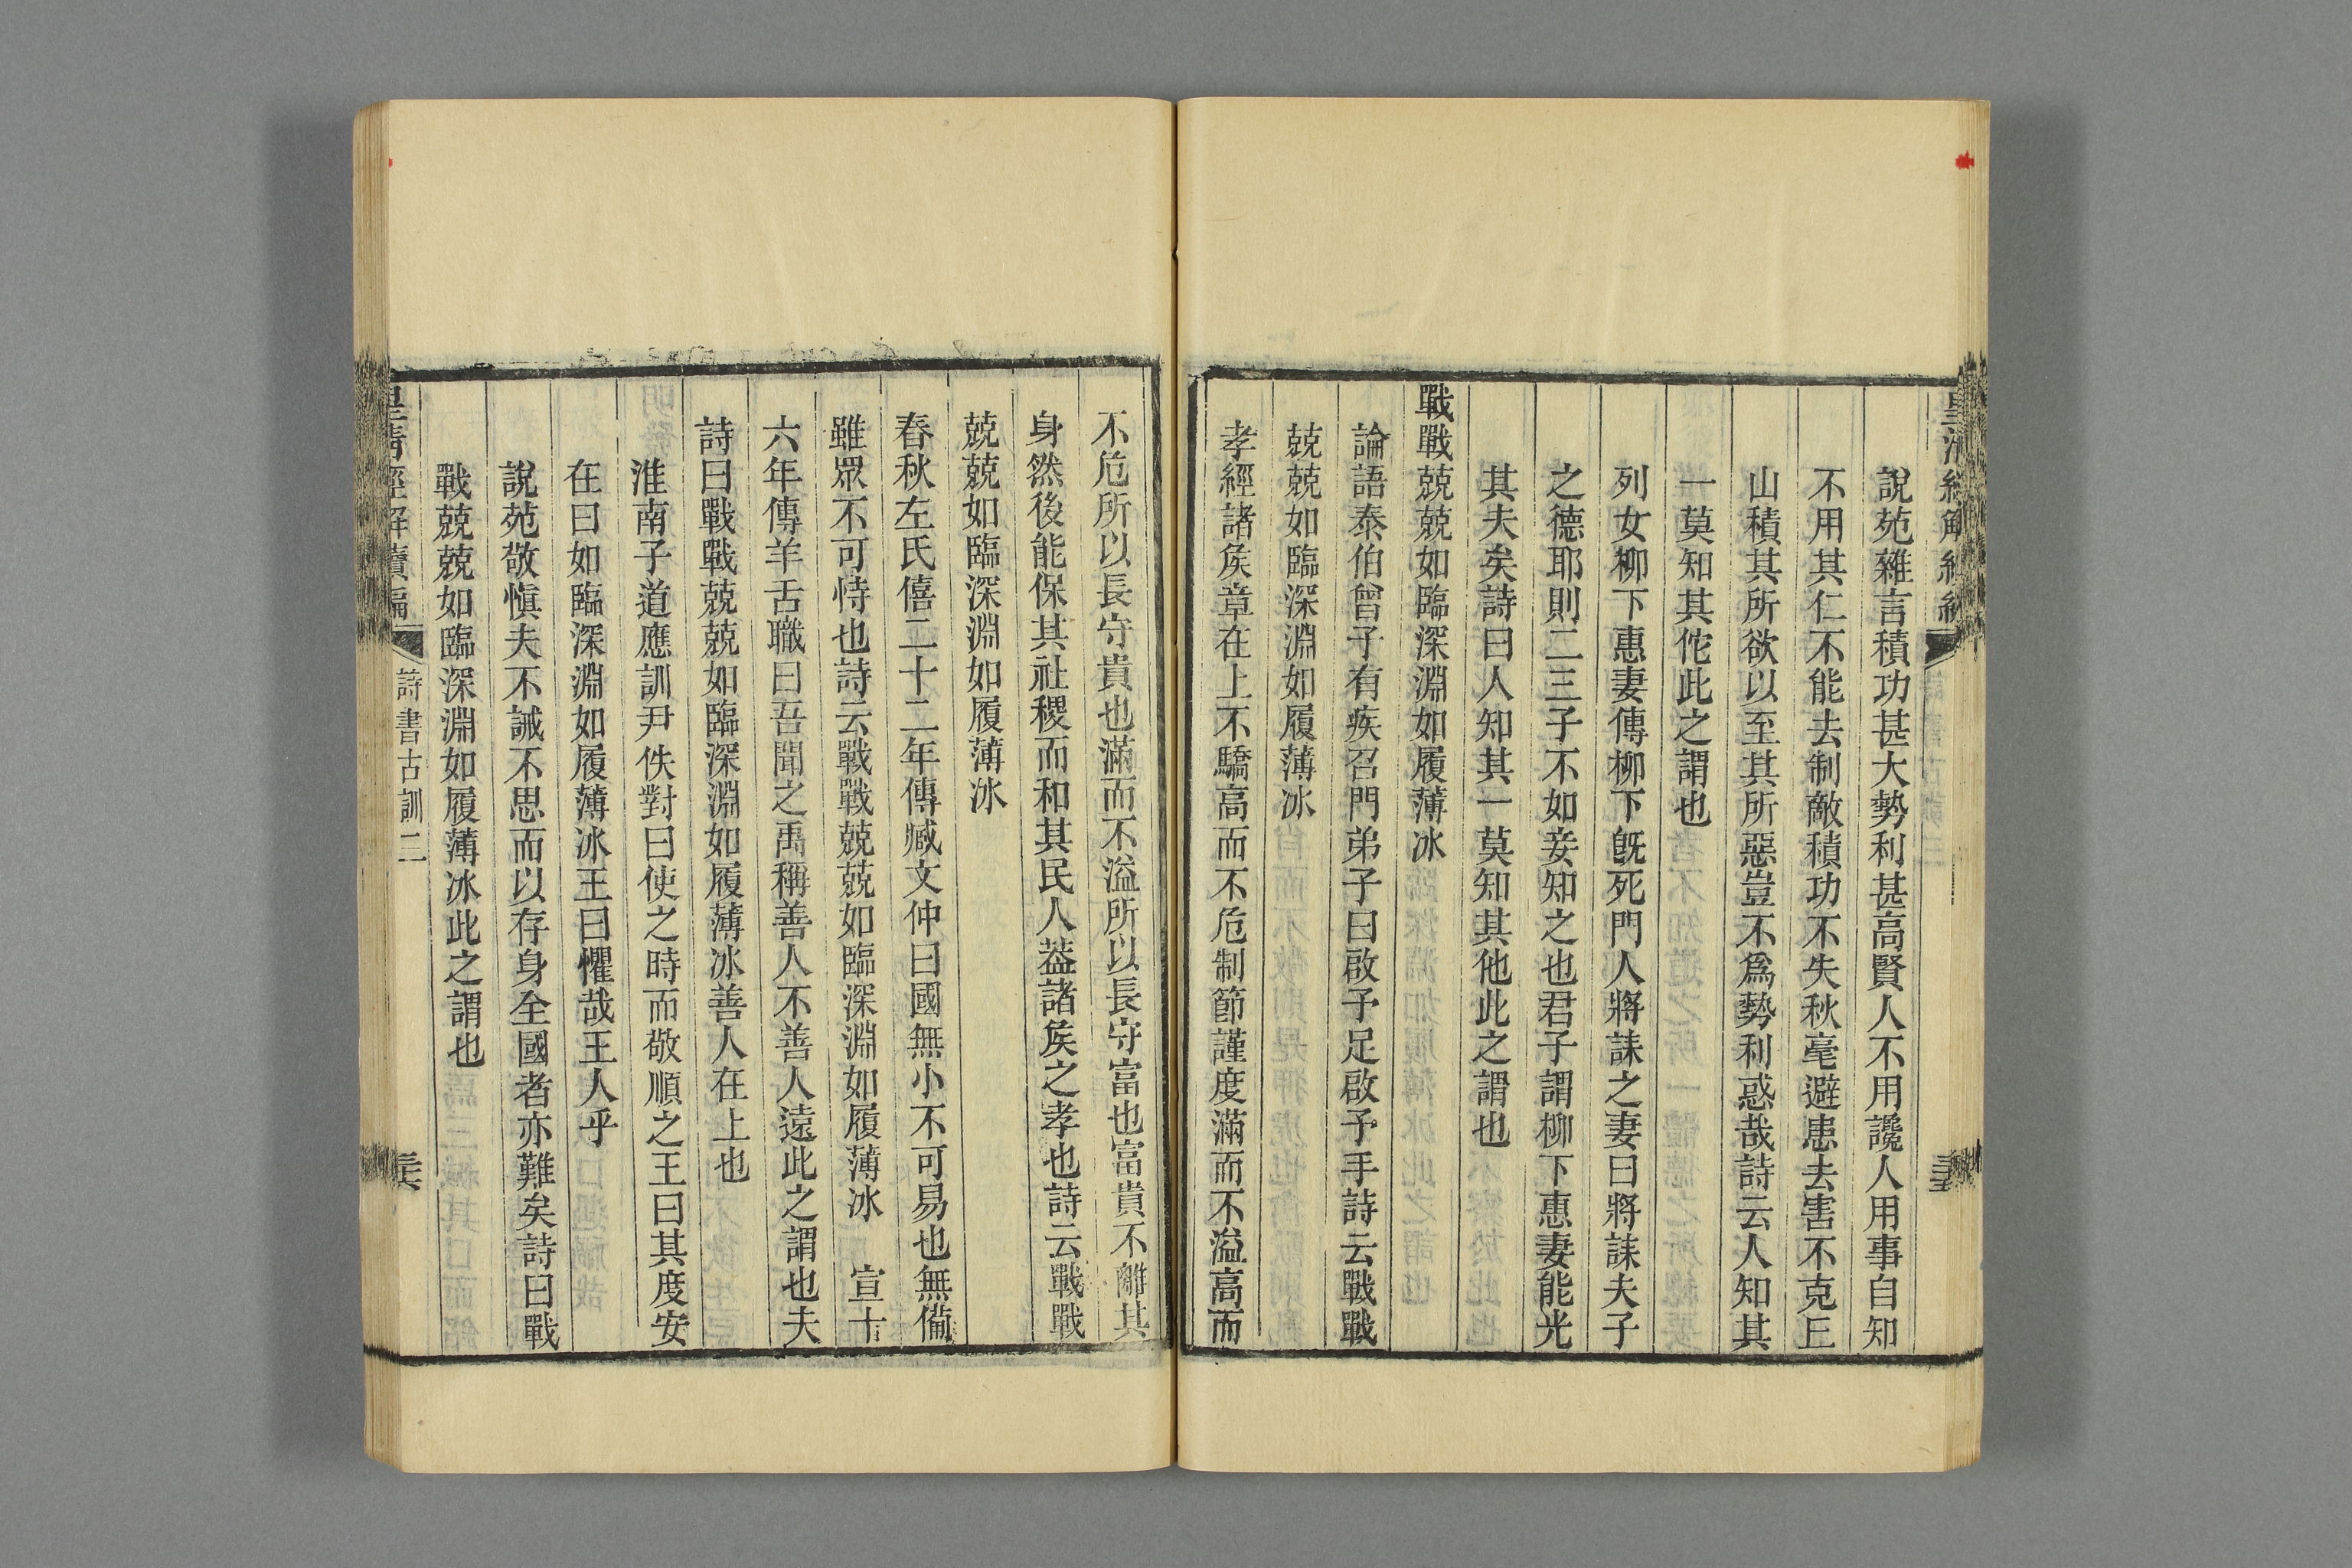 說苑雜言積功甚大勢利甚高賢人不用讒人用事自知
不用其仁不能去制敵積功不失秋毫避患去害不克丘
山積其所欲以至其所惡豈不爲勢利惑哉詩云人知其
一莫知其佗此之謂也
列女柳下惠妻傳柳下旣死門人將誄之妻曰將誄夫子
之德耶則二三子不如妾知之也君子謂柳下惠妻能光
其夫矣詩曰人知其一莫知其他此之謂也
戰戰兢兢如臨深淵如履薄冰
論語泰伯曾子有疾召門弟子曰啟予足啟予手詩云戰戰
兢兢如臨深淵如履薄冰
孝經諸矦章在上不驕高而不危制節謹度滿而不溢高而
不危所以長守貴也滿而不溢所以長守富也富貴不離其
身然後能保其社稷而和其民人葢諸矦之孝也詩云戰戰
兢兢如臨深淵如履薄冰
春秋左氏僖二十二年傳臧文仲曰國無小不可易也無備
雖眾不可恃也詩云戰戰兢兢如臨深淵如履薄冰 宣十
六年傳羊舌職曰吾聞之禹稱善人不善人遠此之謂也夫
詩曰戰戰兢兢如臨深淵如履薄冰善人在上也
淮南子道應訓尹佚對曰使之時而敬順之王曰其度安
在曰如臨深淵如履薄冰王曰懼哉王人乎
說苑敬愼夫不誡不思而以存身全國者亦難矣詩曰戰
戰兢兢如臨深淵如履薄冰此之謂也
皇清經解續編 詩書古訓三